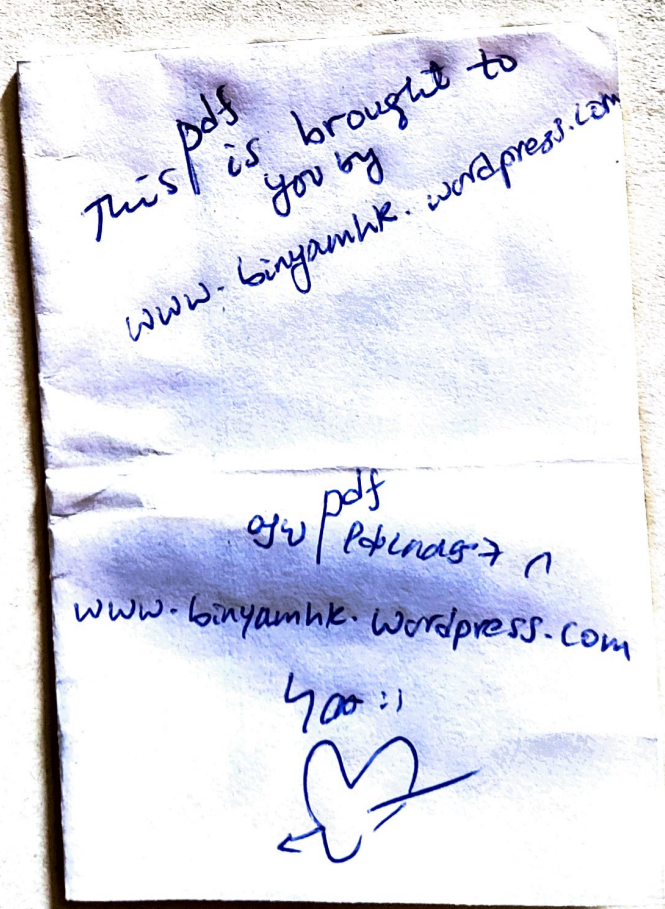 pdf
This is brought to
you by
www.binyamhk.wordpress.com
pdf
ይህ የቀረበላችሁ በ
www.binyamhk.wordpress.com
ነው ።